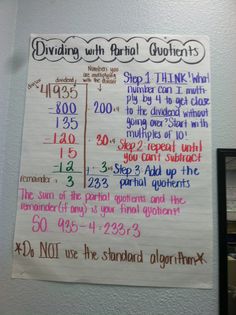 Dividing with Partial Quotients
Number you are multiplying with the divisor
divisor
dividend
4 935
-800 200 ×4
135
-120 30 ×4
15
-12 3 ×4
remainder → 3 233
Step 1 THINK! What
number can I multi-
ply by 4 to get close
to the dividend without
going over? Start with
multiples of 10!
Step 2 repeat until
you can't subtract
Step 3 Add up the
partial quotients
The sum of the partial quotients and the
remainder (if any) is your final quotient!
SO 935÷4=233r3
*Do NOT use the standard algorithm*